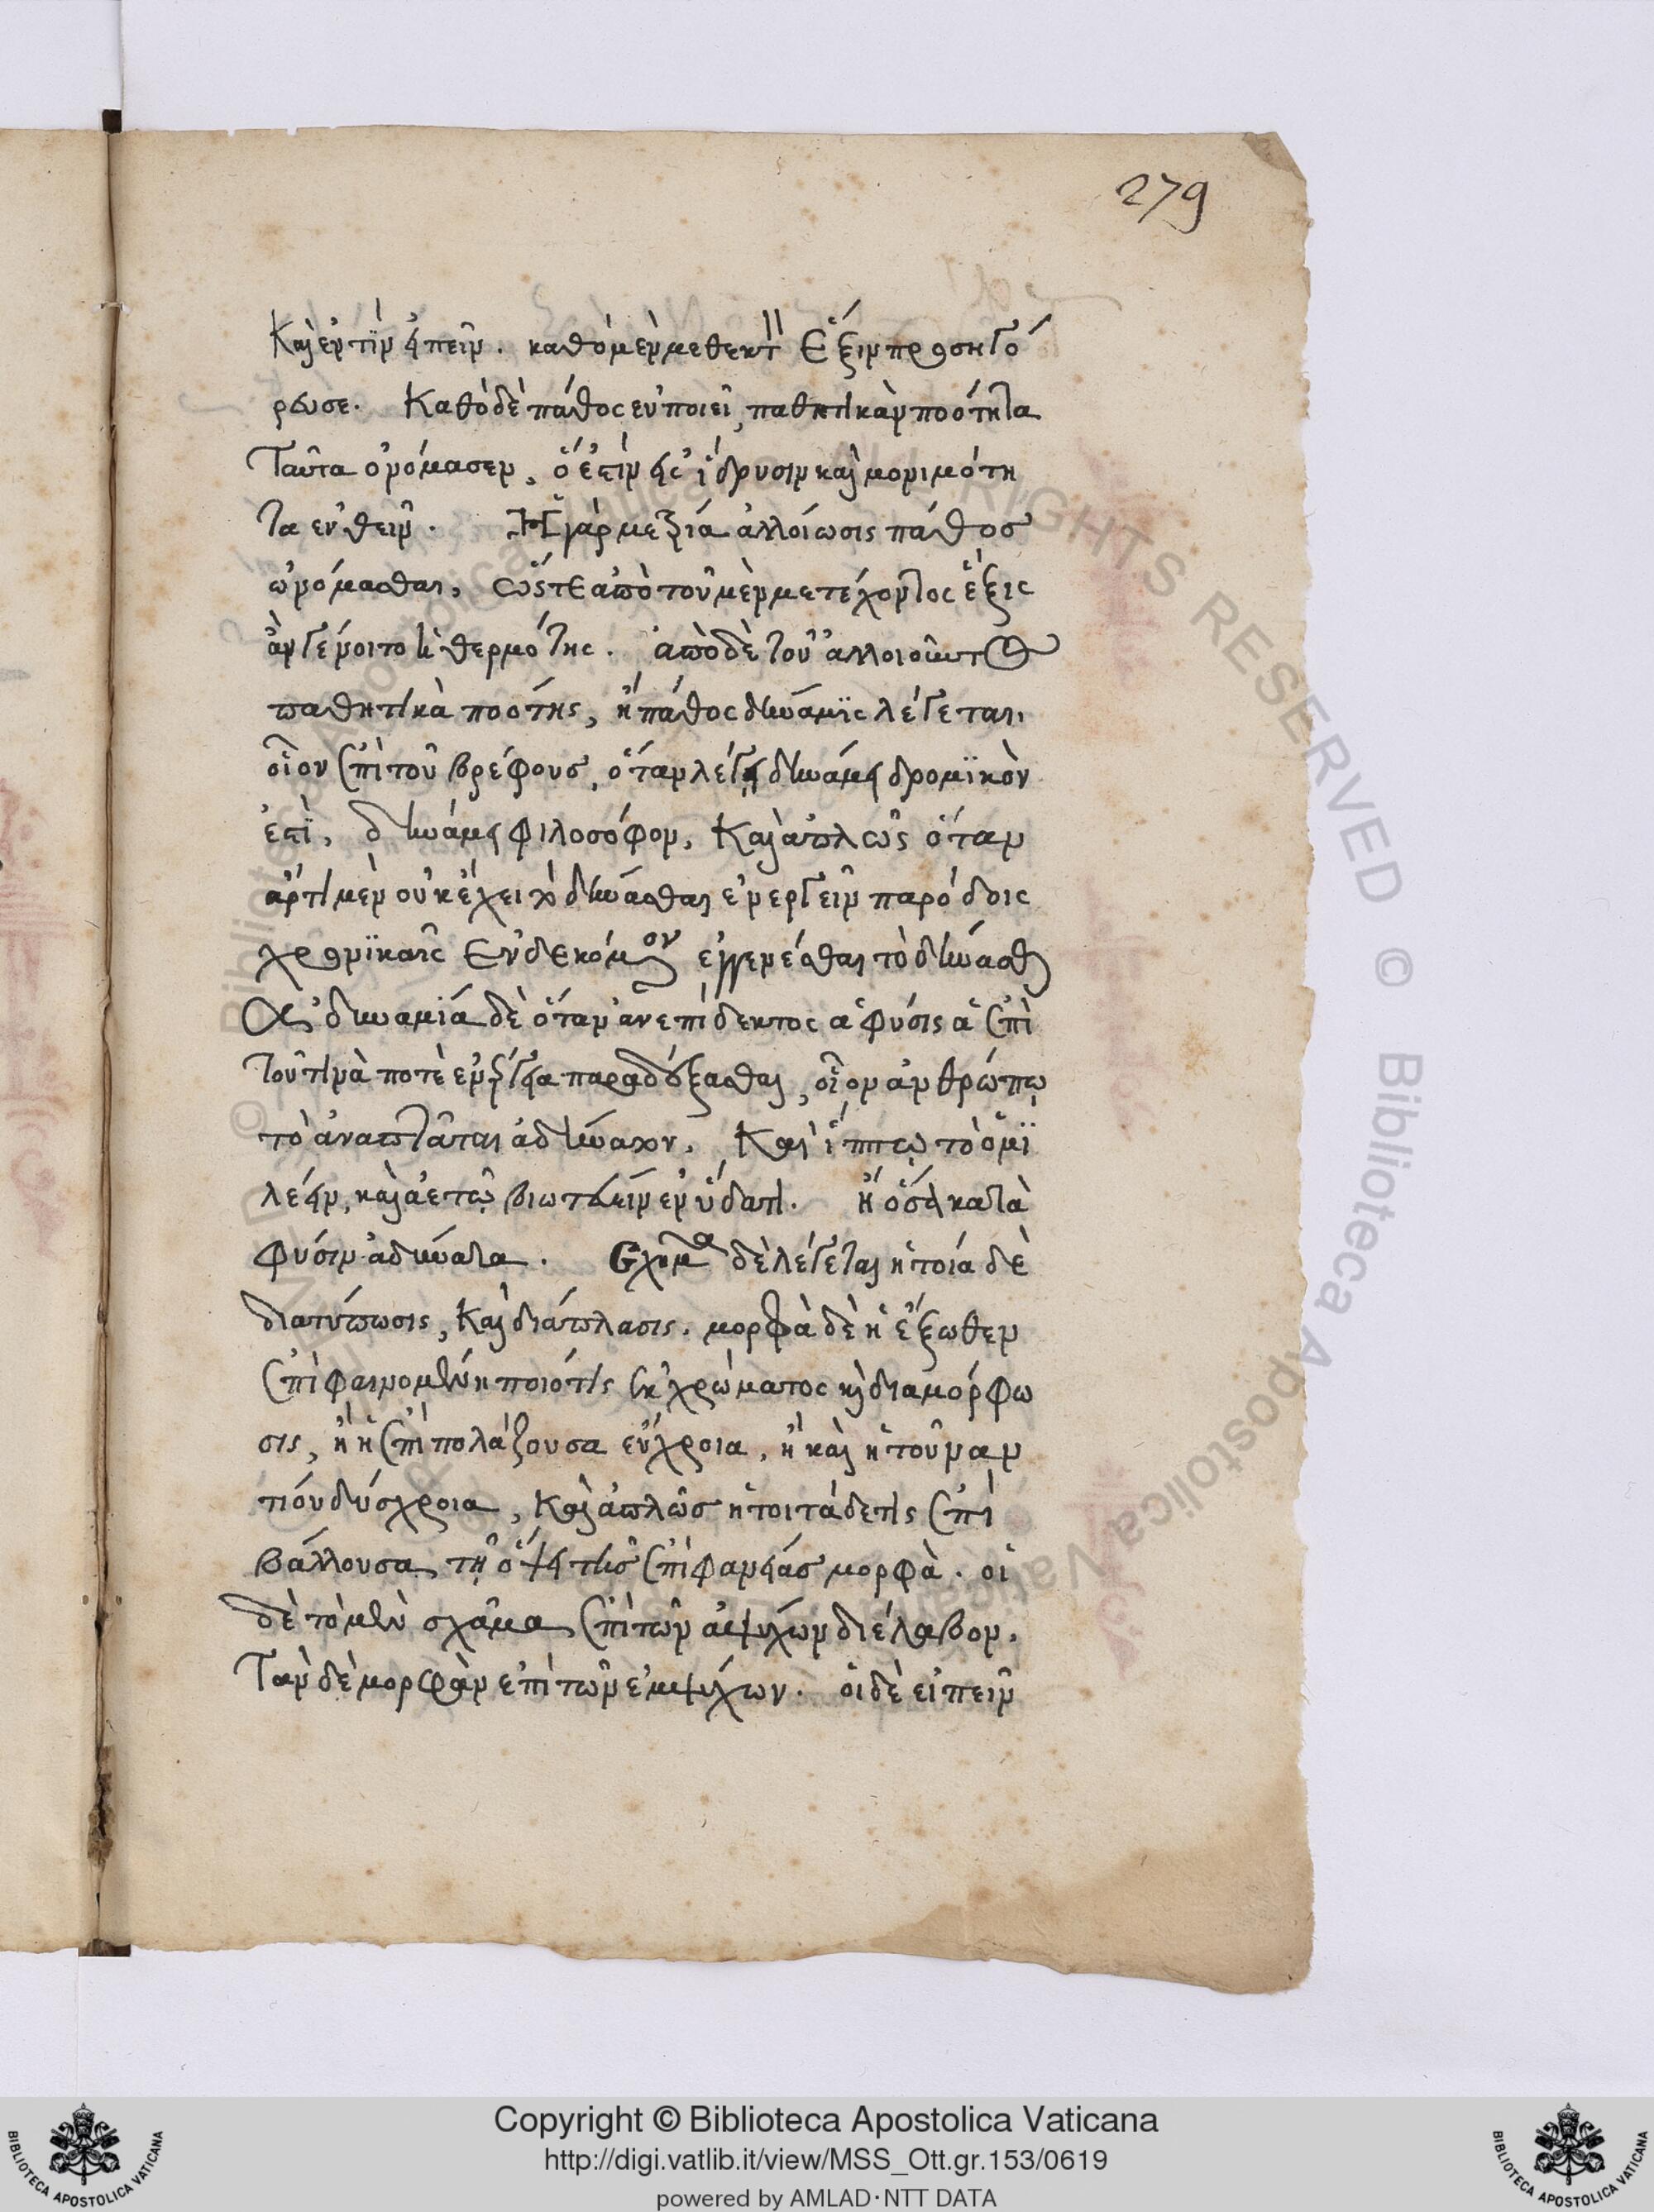 279
Καὶ ἐντὶν εἰπεῖν. καθὸ μὲν μεθεκτὴ ἕξιν προσηγό
ρευσε. Καθὸ δὲ πάθος ἐνποιεῖ, παθητικὰν ποότητα
ταῦτα ὀνόμασεν, ὅ ἐστιν εἰς ἵδρυσιν καὶ μονιμότη
τα ἐνθεῖν. Ἡ γὰρ μετρία ἀλλοίωσις πάθος
ὠνόμασθαι, ὥστε ἀπὸ τοῦ μὲν μετέχοντος ἕξις
ἂν γένοιτο ἡ θερμότης. ἀπὸ δὲ τοῦ ἀλλοιοῦντος
παθητικὰ ποότης, ἢ πάθος δυνάμϊς λέγεται.
οἷον ἐπὶ τοῦ βρέφους, ὅταν λέγει δυνάμει δρομϊκὸν
ἐστὶ, δυνάμει φιλοσόφον, Καὶ ἁπλῶς ὅταν
ἄρτι μὲν οὐκ ἔχει τὸ δύνασθαι ἐνεργεῖν παρόδοις
χρονϊκαῖς ἐνδεκόμενον ἐγγενέσθαι τὸ δύνασθαι
Ἀδυναμία δὲ ὅταν ἀνεπίδεκτος ἁ φύσις ᾖ ἐπὶ
τοῦ τινὰ ποτὲ ἐνέργεια παραδέξασθαι, οἷον ἀνθρώπῳ
τὸ ἀναπτᾶται ἀδύνατον, Καὶ ἵππῳ τὸ ὁμϊ
λέειν, καὶ ἀετῷ βιωτεύειν ἐν ὕδατι. ἢ ὅσα κατὰ
φύσιν ἀδύνατα. Σχῆμα δὲ λέγεται ἡ τοία δε
διατύπωσις, Καὶ διάπλασις. μορφὰ δὲ ἡ ἔξωθεν
ἐπιφαινομένη ποιότης ἐκ χρώματος καὶ διαμόρφω
σις, ἢ ἡ ἐπιπολάζουσα εὔχροια, ἢ καὶ ἡ τοῦναν
τίον δύσχροια, Καὶ ἁπλῶς ἡ τοιτάδε τις ἐπι
βάλλουσα τῇ ὄψει τῆς ἐπιφανείας μορφὰ. οἱ
δὲ τὸ μὲν σχᾶμα ἐπὶ τῶν ἀψύχων διέλαβον,
Τὰν δὲ μορφὰν ἐπὶ τῶν ἐμψύχων. οἱ δὲ εἰπεῖν
© Biblioteca Apostolica Vaticana ALL RIGHTS RESERVED © Biblioteca Apostolica Vaticana
Copyright © Biblioteca Apostolica Vaticana
http://digi.vatlib.it/view/MSS_Ott.gr.153/0619
powered by AMLAD·NTT DATA
BIBLIOTECA APOSTOLICA VATICANA
BIBLIOTECA APOSTOLICA VATICANA